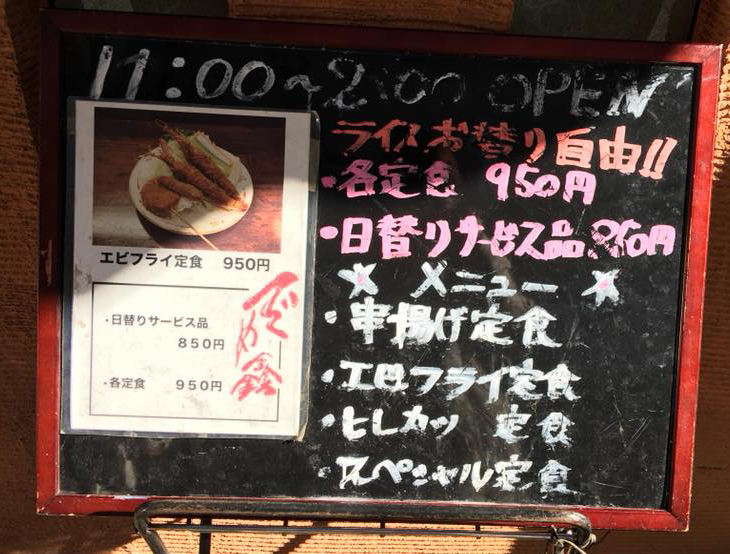 11:00~2:00 OPEN
ライスお替り自由!!
・各定食 950円
・日替りサービス品 850円
☆ メニュー ☆
・串揚げ定食
・エビフライ定食
・ヒレカツ 定食
・スペシャル定食
エビフライ定食 950円
・日替りサービス品
850円
・各定食 950円
でめ鑫